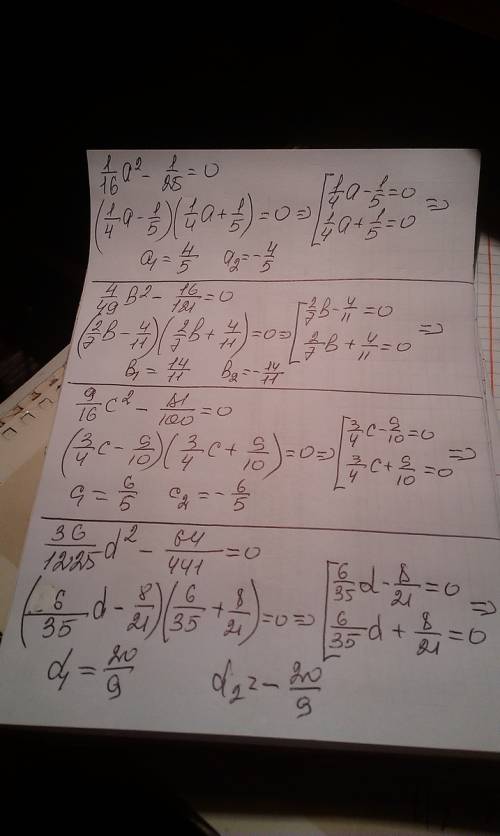 1/16 a² - 1/25 = 0
(1/4 a - 1/5)(1/4 a + 1/5) = 0 => [1/4 a - 1/5 = 0 1/4 a + 1/5 = 0 =>
a₁ = 4/5 a₂ = - 4/5
4/49 в² - 16/121 = 0
(2/7 в - 4/11)(2/7 в + 4/11) = 0 => [2/7 в - 4/11 = 0 2/7 в + 4/11 = 0 =>
в₁ = 14/11 в₂ = - 14/11
9/16 c² - 81/100 = 0
(3/4 c - 9/10)(3/4 c + 9/10) = 0 => [3/4 c - 9/10 = 0 3/4 c + 9/10 = 0 =>
c₁ = 6/5 c₂ = - 6/5
36/1225 d² - 64/441 = 0
(6/35 d - 8/21)(6/35 + 8/21) = 0 => [6/35 d - 8/21 = 0 6/35 d + 8/21 = 0 =>
d₁ = 20/9 d₂ = - 20/9